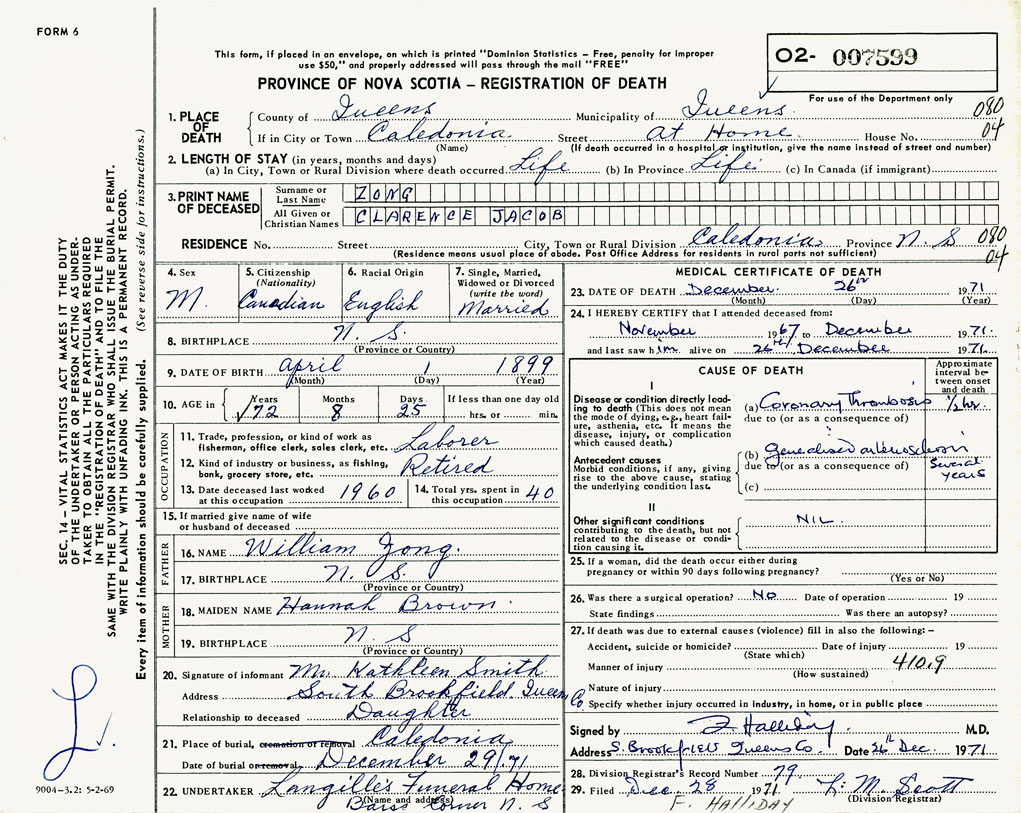 FORM 6
This form, if placed in an envelope, on which is printed "Dominion Statistics – Free, penalty for improper
use $50," and properly addressed will pass through the mail "FREE"
PROVINCE OF NOVA SCOTIA – REGISTRATION OF DEATH
O2- 007599
For use of the Department only
1. PLACE OF DEATH
County of Queens Municipality of Queens 080
If in City or Town Caledonia Street at Home House No. 04
(Name) (If death occurred in a hospital or institution, give the name instead of street and number)
2. LENGTH OF STAY (in years, months and days)
(a) In City, Town or Rural Division where death occurred Life (b) In Province Life (c) In Canada (if immigrant)
3. PRINT NAME OF DECEASED
Surname or Last Name ZONG
All Given or Christian Names CLARENCE JACOB
RESIDENCE No. Street City, Town or Rural Division Caledonia Province N. S 080
(Residence means usual place of abode. Post Office Address for residents in rural parts not sufficient) 04
4. Sex
M.
5. Citizenship
(Nationality)
Canadian
6. Racial Origin
English
7. Single, Married,
Widowed or Divorced
(write the word)
Married
8. BIRTHPLACE N. S.
(Province or Country)
9. DATE OF BIRTH April 1 1899
(Month) (Day) (Year)
10. AGE in Years Months Days If less than one day old
72 8 25 hrs. or min.
OCCUPATION
11. Trade, profession, or kind of work as
fisherman, office clerk, sales clerk, etc. Laborer
12. Kind of industry or business, as fishing,
bank, grocery store, etc. Retired
13. Date deceased last worked
at this occupation 1960
14. Total yrs. spent in
this occupation 40
15. If married give name of wife
or husband of deceased
FATHER
16. NAME William Zong.
17. BIRTHPLACE N. S.
(Province or Country)
MOTHER
18. MAIDEN NAME Hannah Brown
19. BIRTHPLACE N. S
(Province or Country)
20. Signature of informant Mrs. Kathleen Smith
Address South Brookfield, Queens Co.
Relationship to deceased Daughter
21. Place of burial, cremation or removal Caledonia
Date of burial or removal December 29/71
22. UNDERTAKER Langille's Funeral Home
(Name and address)
Barss Corner N. S
MEDICAL CERTIFICATE OF DEATH
23. DATE OF DEATH December 26th 1971
(Month) (Day) (Year)
24. I HEREBY CERTIFY that I attended deceased from:
November 1967 to December 1971.
and last saw him alive on 26th December 1971.
CAUSE OF DEATH
Approximate
interval be-
tween onset
and death
I
Disease or condition directly lead-
ing to death (This does not mean
the mode of dying, e.g., heart fail-
ure, asthenia, etc. It means the
disease, injury, or complication
which caused death.)
(a) Coronary thrombosis ½ hr.
due to (or as a consequence of)
Antecedent causes
Morbid conditions, if any, giving
rise to the above cause, stating
the underlying condition last.
(b) Generalised arteriosclerosis
due to (or as a consequence of) Several years
(c)
II
Other significant conditions
contributing to the death, but not
related to the disease or condi-
tion causing it.
NIL.
25. If a woman, did the death occur either during
pregnancy or within 90 days following pregnancy?
(Yes or No)
26. Was there a surgical operation? No Date of operation 19
State findings Was there an autopsy?
27. If death was due to external causes (violence) fill in also the following: –
Accident, suicide or homicide? Date of injury 19
(State which)
Manner of injury 410.9
(How sustained)
Nature of injury
Specify whether injury occurred in industry, in home, or in public place
Signed by F Halliday M.D.
Address S. Brookfield Queens Co. Date 26th Dec. 1971
28. Division Registrar's Record Number 79
29. Filed Dec. 28 1971 L. M. Scott
(Division Registrar)
F. HALLIDAY
SEC. 14 – VITAL STATISTICS ACT MAKES IT THE DUTY
OF THE UNDERTAKER OR PERSON ACTING AS UNDER-
TAKER TO OBTAIN ALL THE PARTICULARS REQUIRED
IN THE "REGISTRATION OF DEATH" AND TO FILE THE
SAME WITH THE DIVISION REGISTRAR WHO SHALL ISSUE THE BURIAL PERMIT.
WRITE PLAINLY WITH UNFADING INK. THIS IS A PERMANENT RECORD.
Every item of information should be carefully supplied. (See reverse side for instructions.)
9004-3.2: 5-2-69